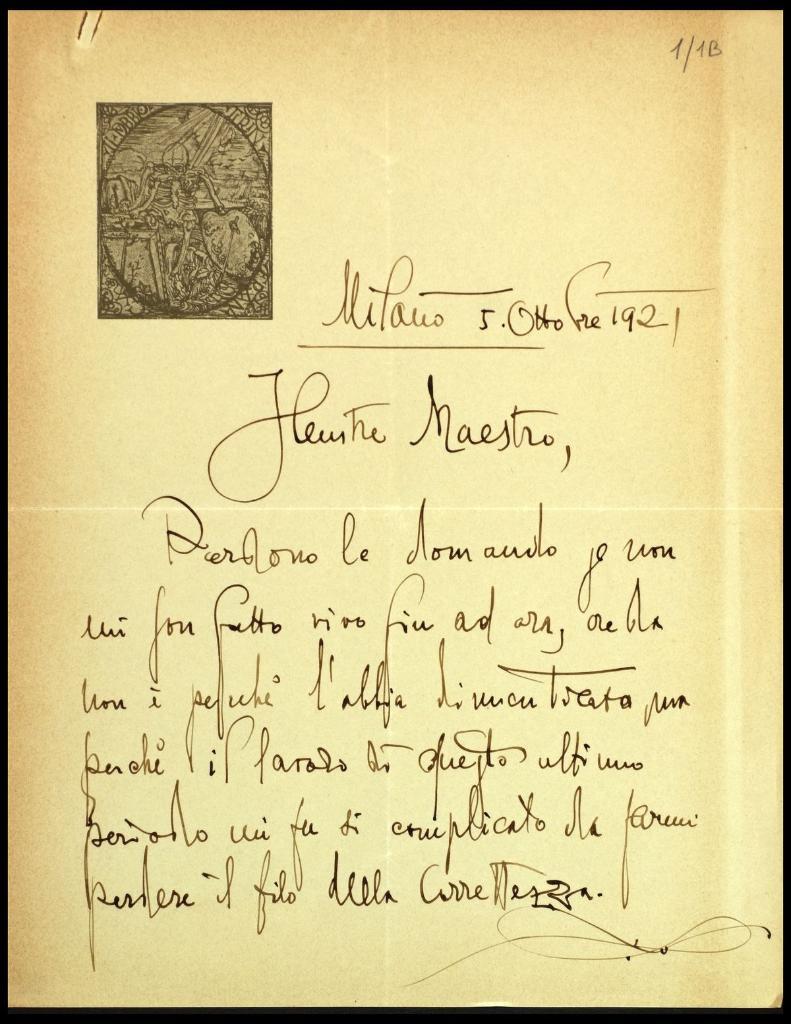 1/1B
Milano 5. Ottobre 1921
Illustre Maestro,
Perdono le domando se non
mi son fatto vivo fin ad ora, e
non è perchè l'abbia dimenticata, ma
perchè il lavoro di questo ultimo
periodo mi fu sì complicato da farmi
perdere il filo della Correttezza.